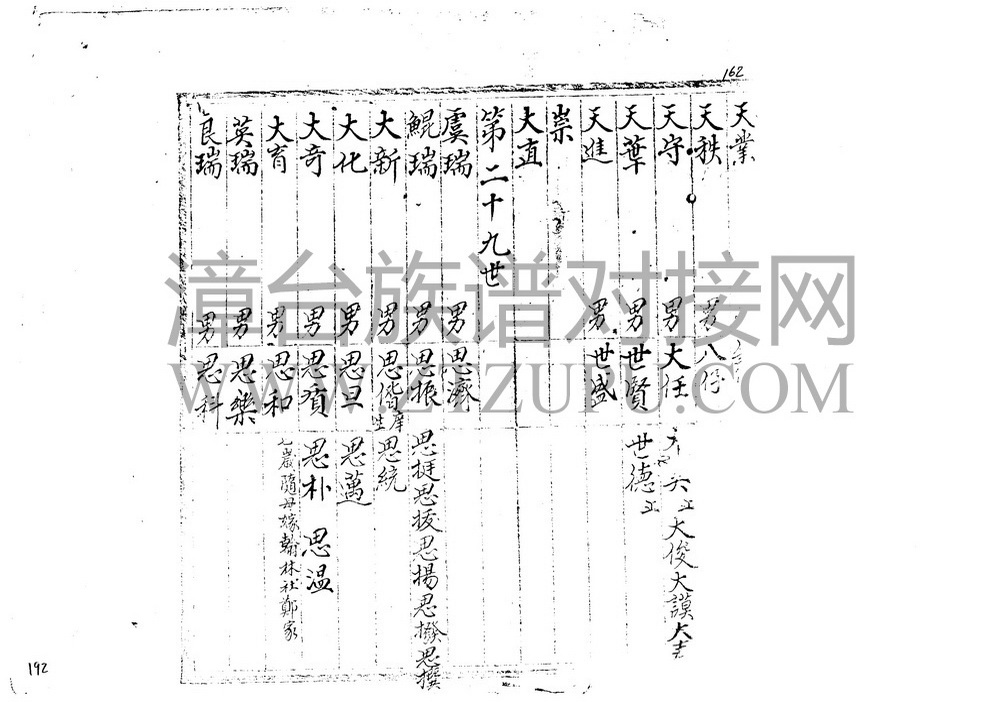 162
天業
天秩 男 八仔
天守 男 大任 大俊 大謨
天葉 男 世賢 世德
天進 男 世盛
崇
大直
第二十九世
虞瑞 男 思濟
鯤瑞 男 思振 思挺 思拔 思揚 思撥 思撰
大新 男 思偕 庠生 思統
大化 男 思旦 思邁
大奇 男 思賓 思朴 思温
大育 男 思和 七歲隨母嫁翰林社鄭家
英瑞 男 思樂
良瑞 男 思科
192
漳台族谱对接网
WWW.ZTZUPU.COM